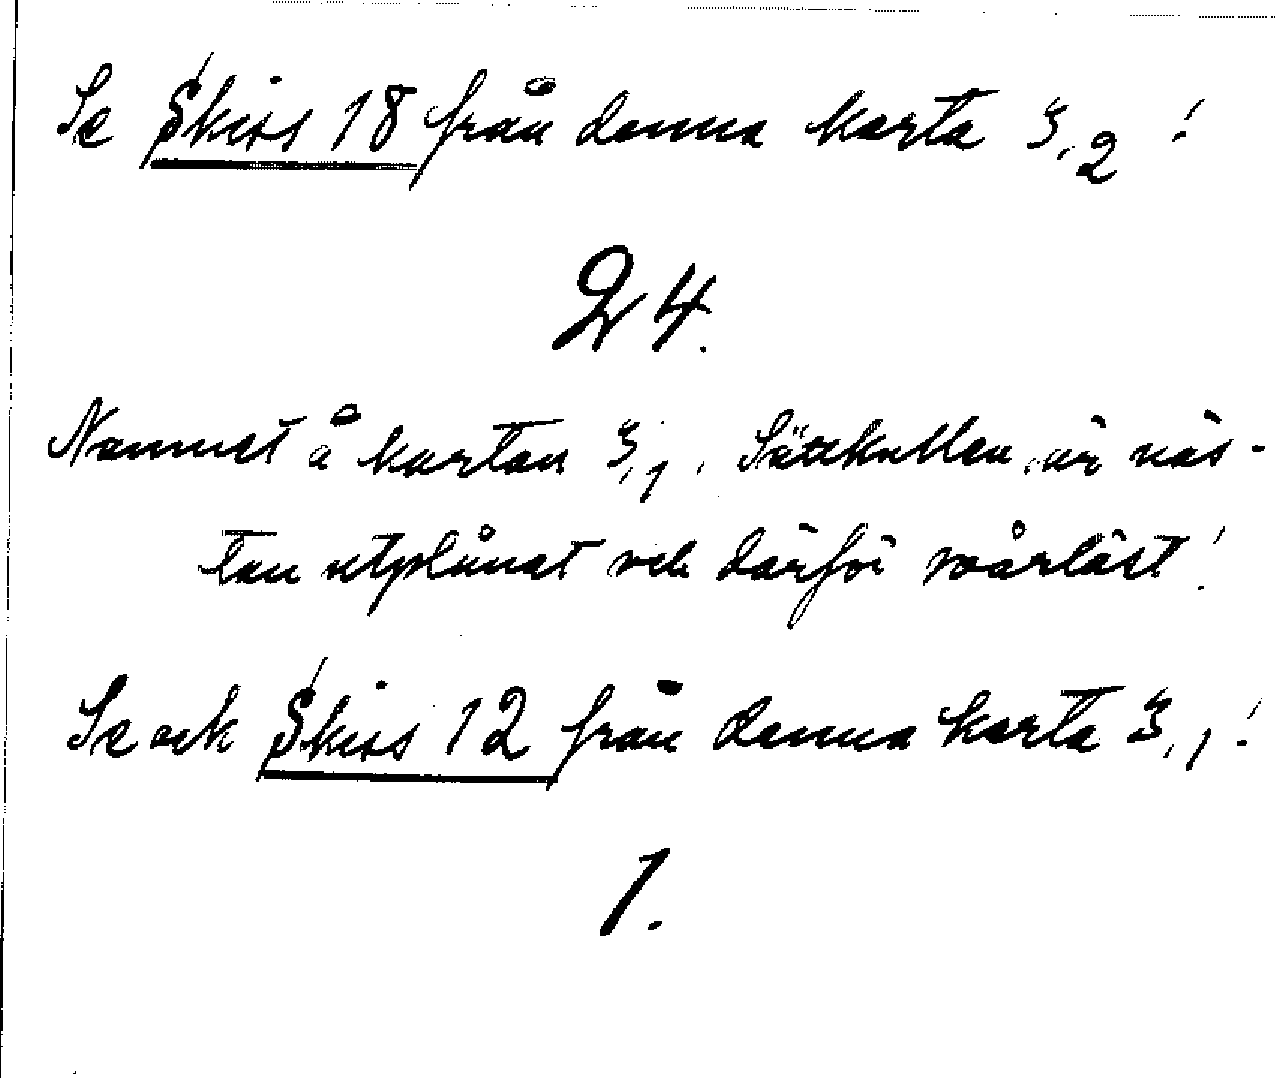 Se Skiss 18 från denna karta 3,2 !
24.
Namnet å kartan 3,1, Sättkullen, är näs-
tan utplånat och därför svårläst!
Se ock Skiss 12 från denna karta 3,1!
1.